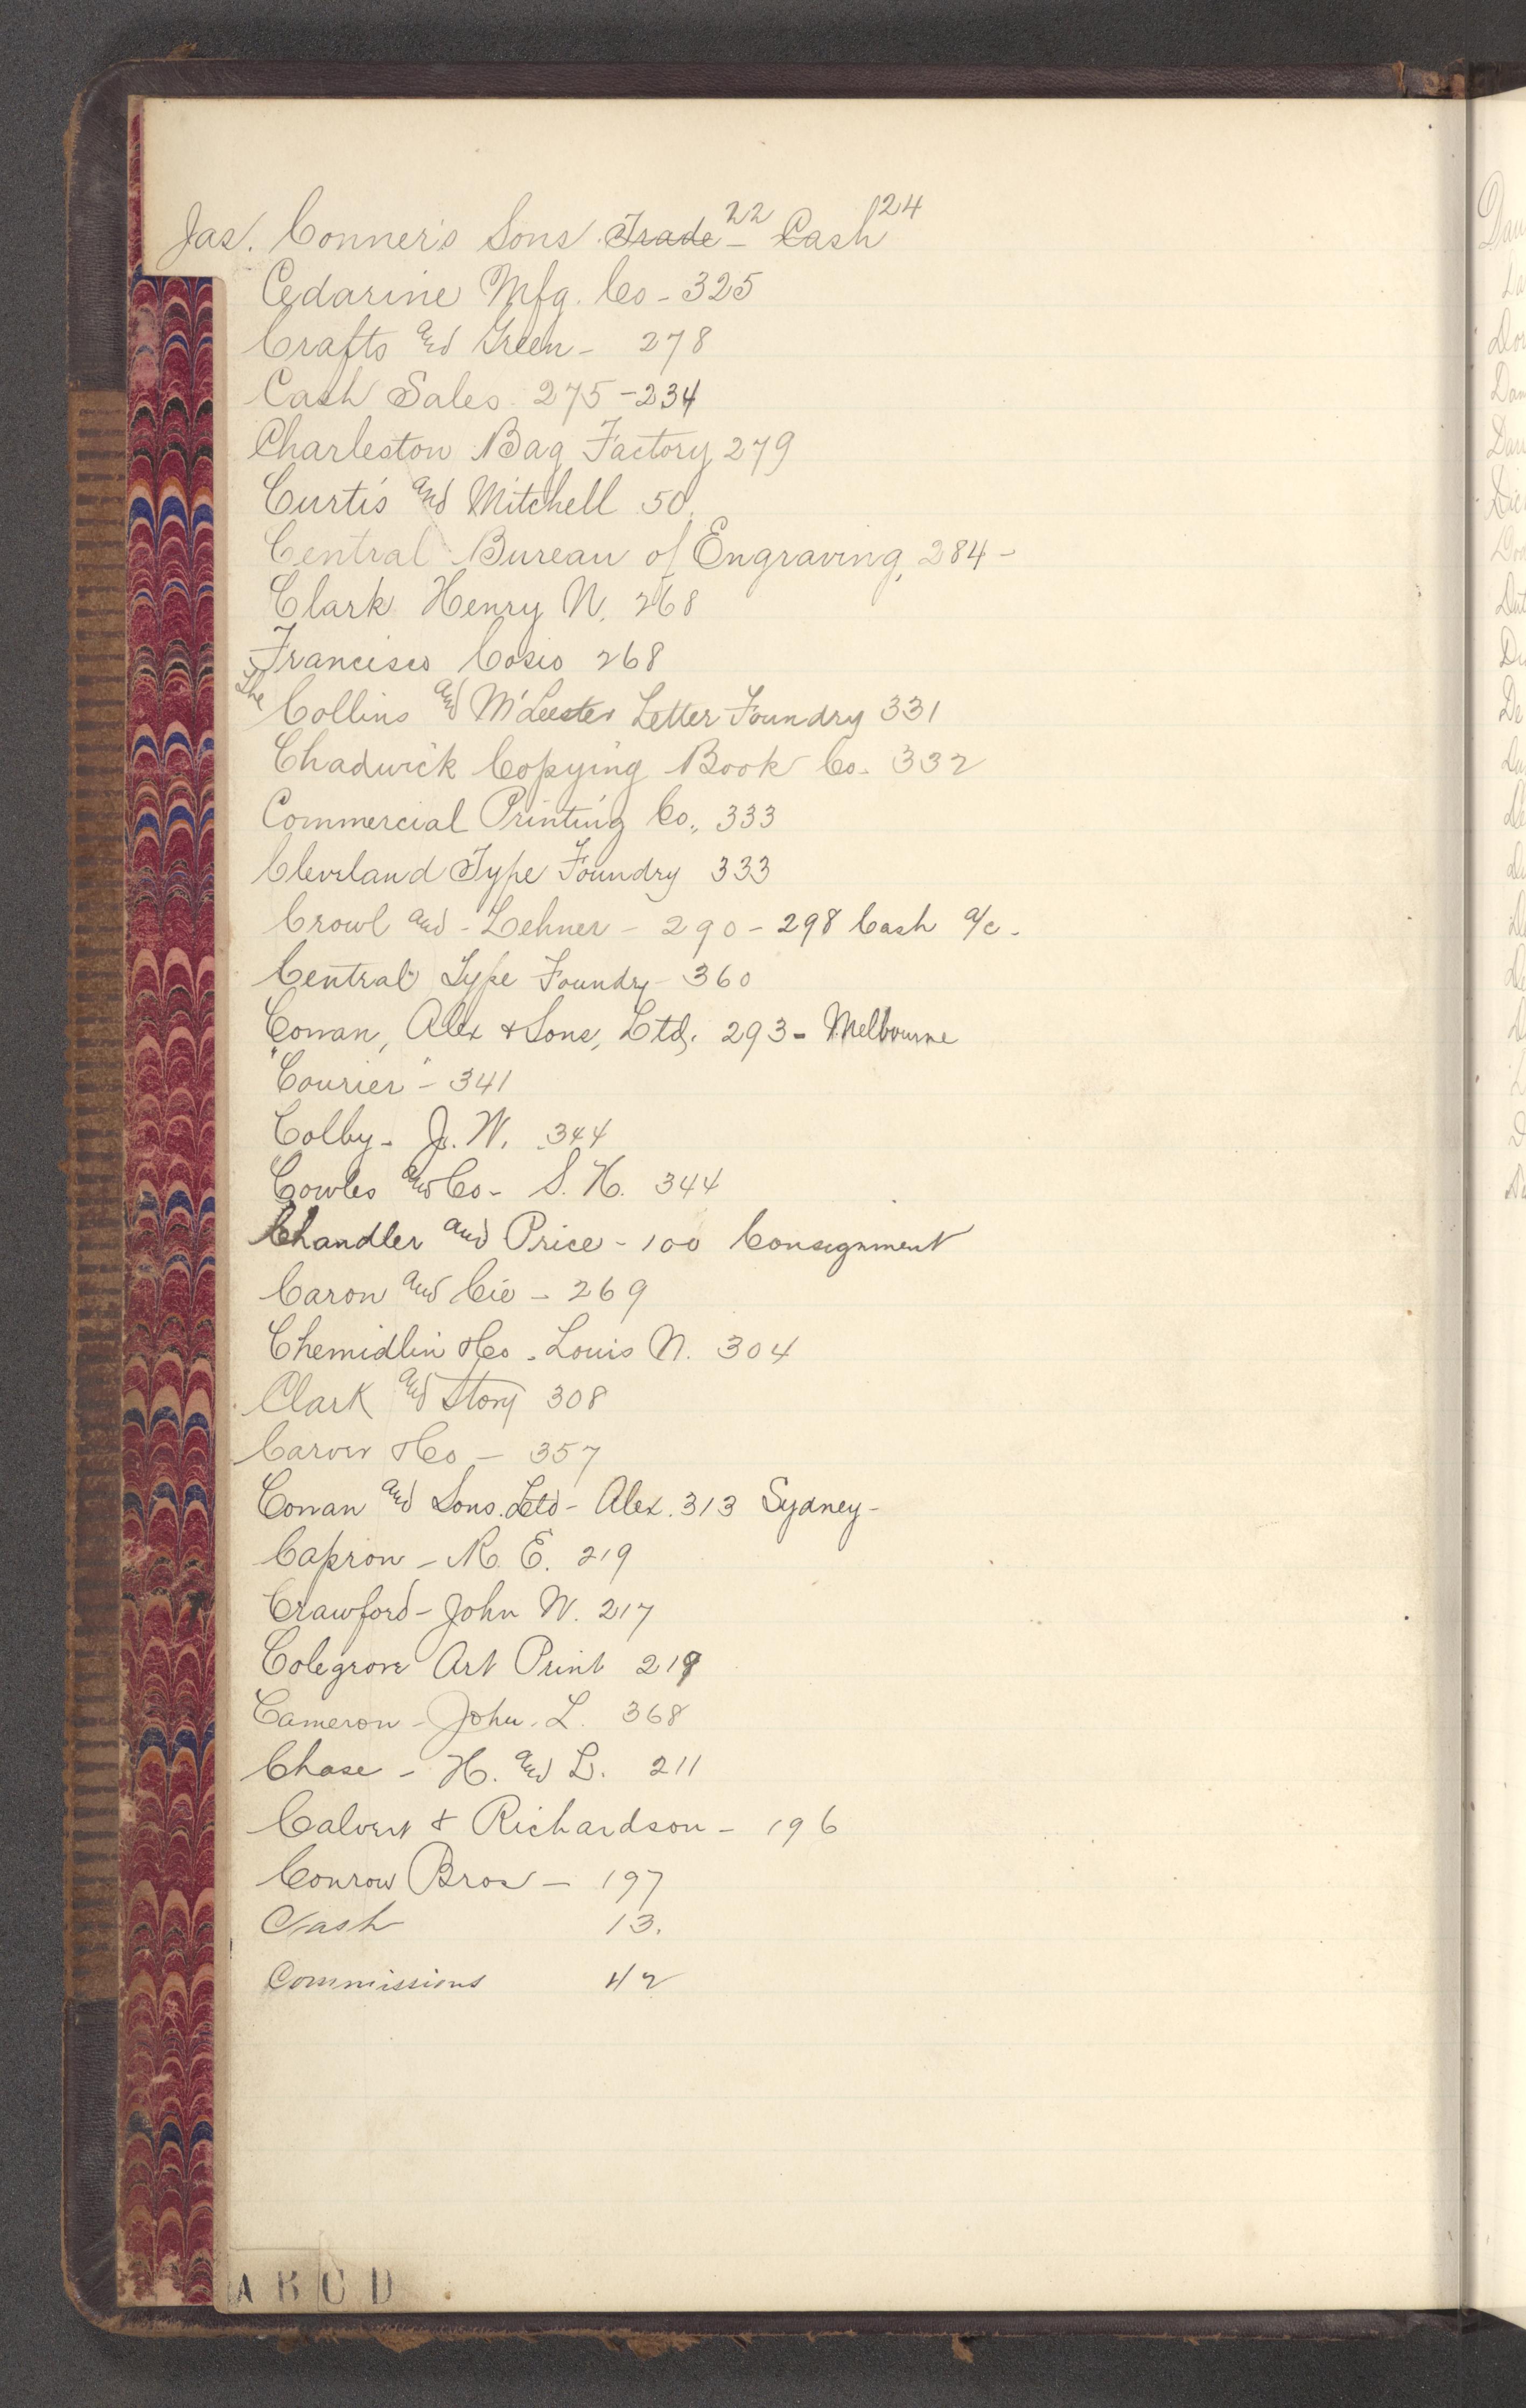 Jas. Conner's Sons Trade 22 - Cash 24
Cedarine Mfg. Co - 325
Crafts and Green - 278
Cash Sales 275 - 234
Charleston Bag Factory 279
Curtis and Mitchell 50.
Central Bureau of Engraving, 284 -
Clark Henry N. 268
Francisco Cosio 268
The Collins and M'Leester Letter Foundry 331
Chadwick Copying Book Co. 332
Commercial Printing Co., 333
Cleveland Type Foundry 333
Crowl and - Lehner - 290 - 298 Cash a/c -
Central Type Foundry - 360
Cowan, Alex & Sons, Ltd. 293 - Melbourne
"Courier" - 341
Colby - J. W. 344
Cowles and Co - S. H. 344
Chandler and Price - 100 Consignment
Caron and Cie - 269
Chemidlin & Co - Louis N. 304
Clark and Story 308
Carver & Co - 357
Cowan and Sons. Ltd - Alex. 313 Sydney -
Capron - R. E. 219
Crawford - John W. 217
Colegrove Art Print 219
Cameron - John. L. 368
Chase - H. and L. 211
Calvert & Richardson - 196
Conrow Bros - 197
Cash 13.
Commissions 42
A B C D